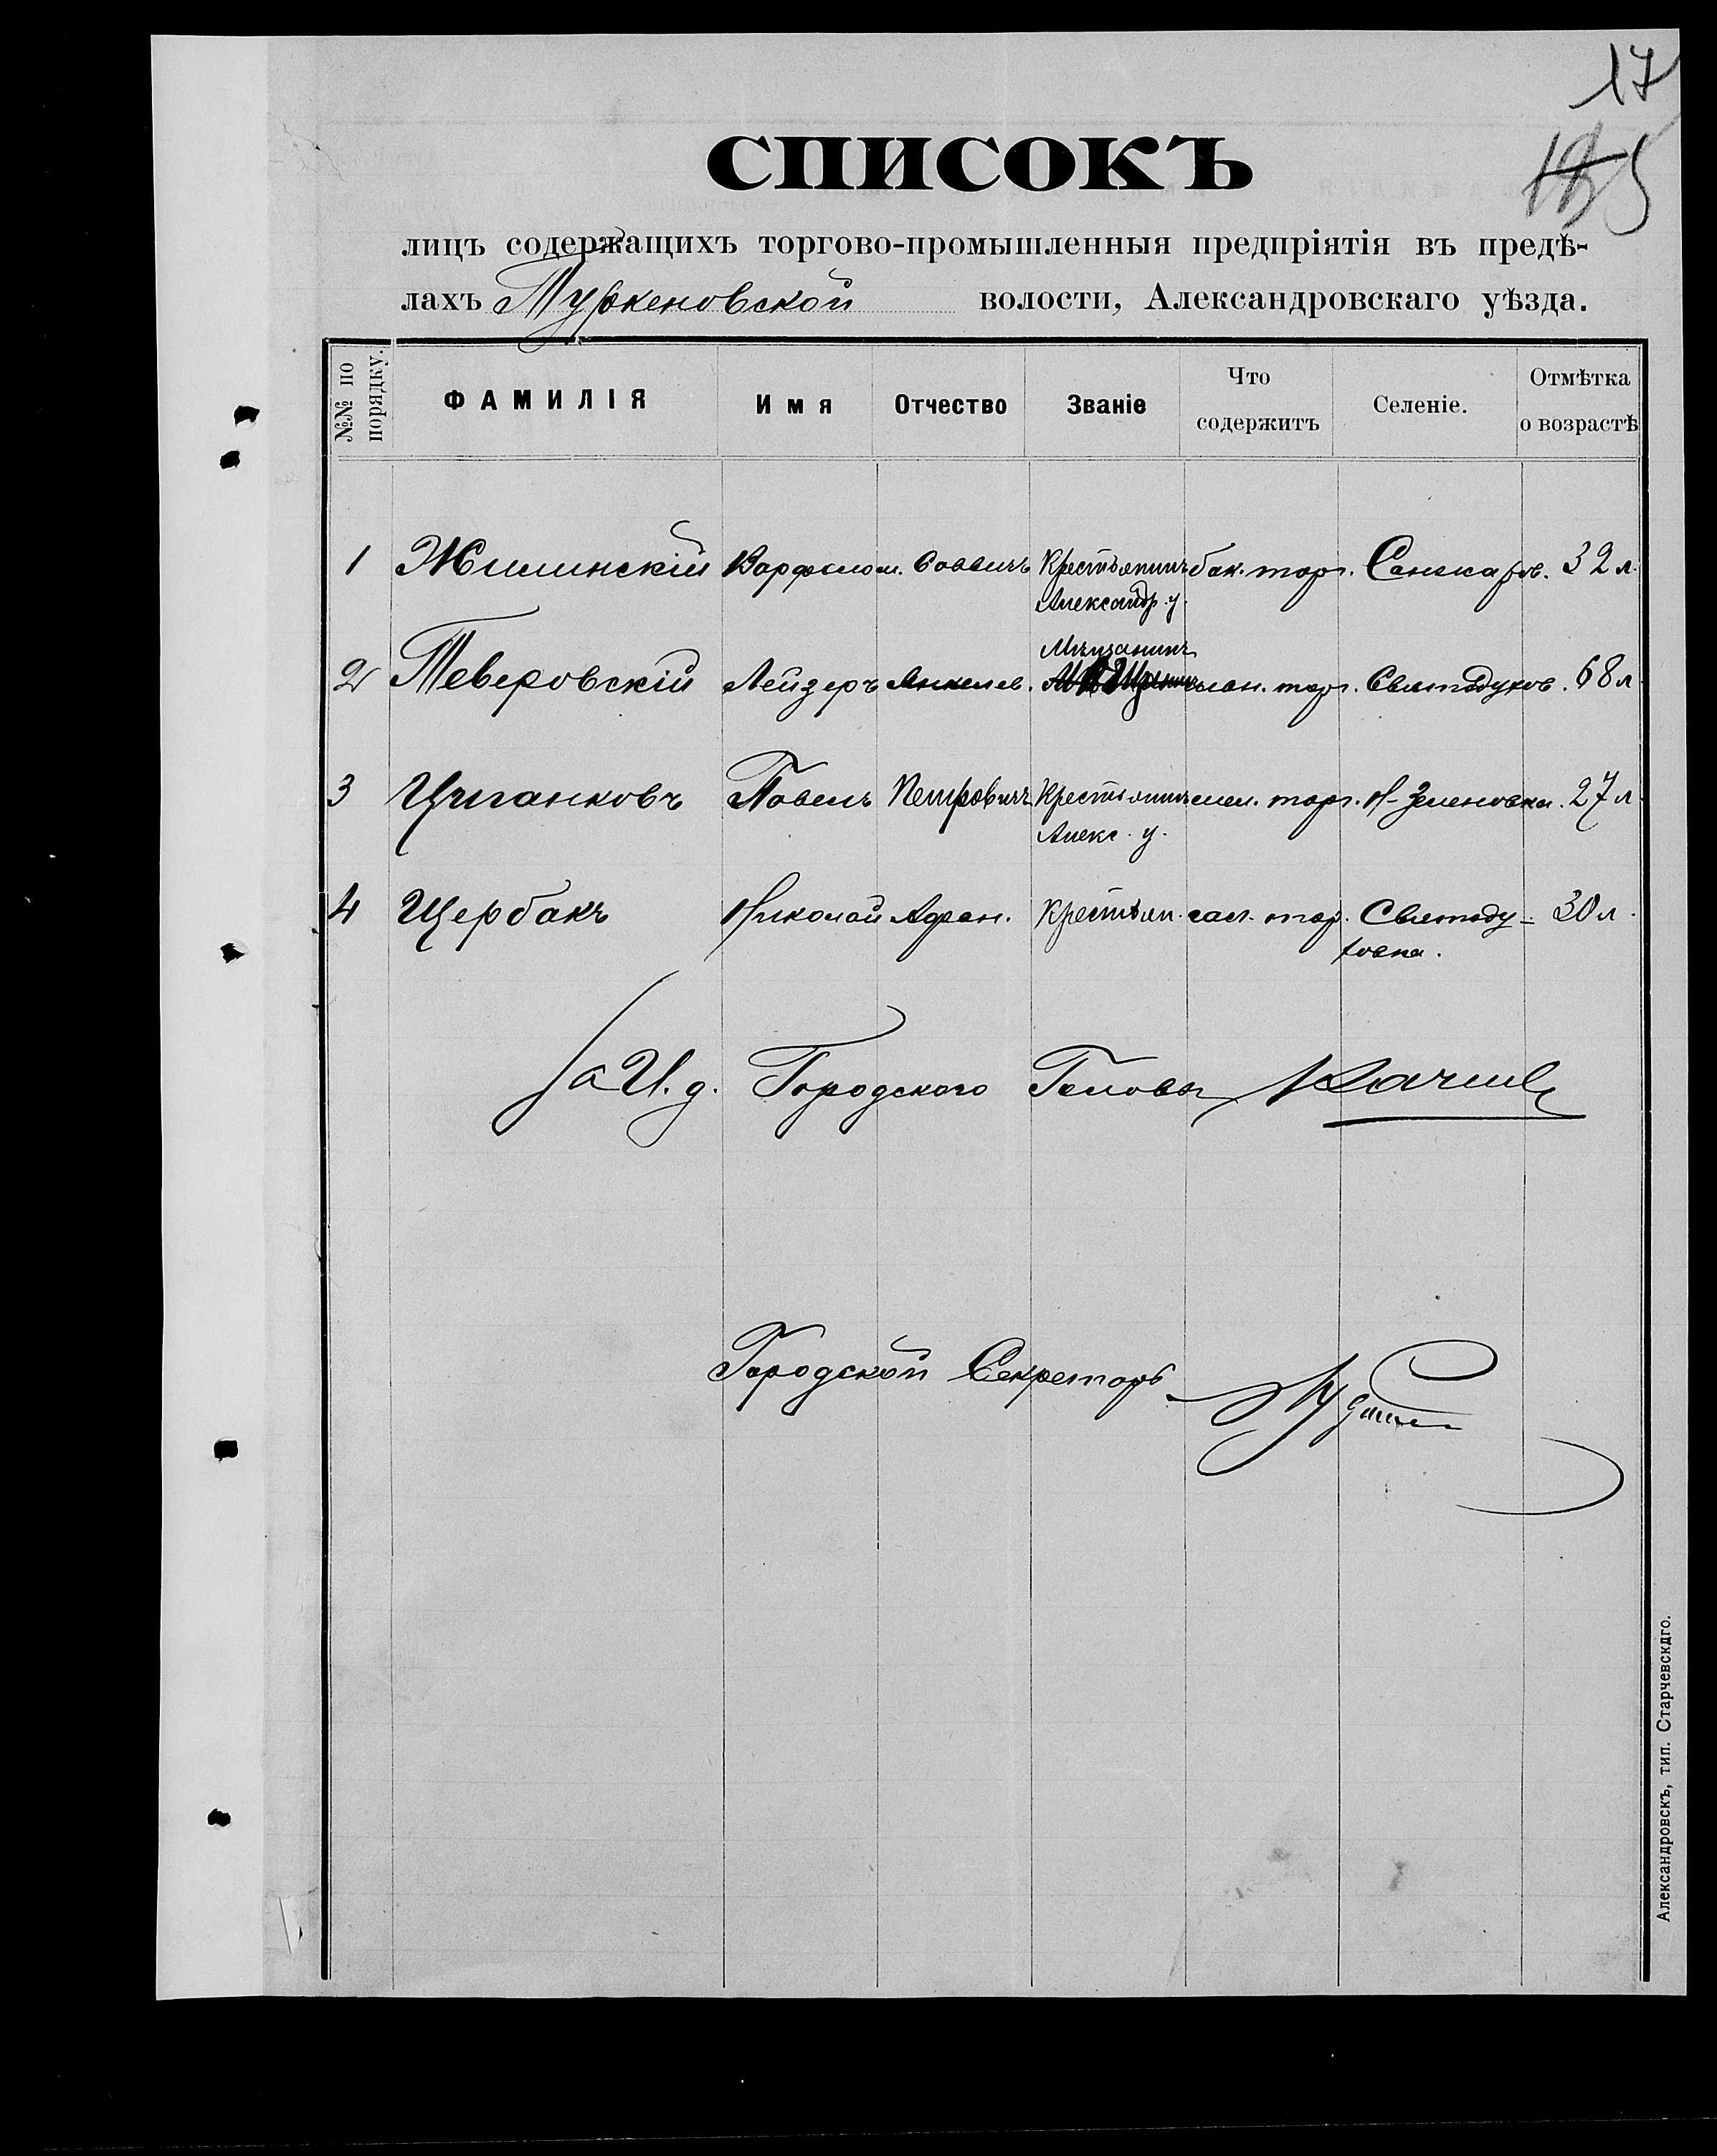 17
СПИСОКЪ
лицъ содержащихъ торгово-промышленныя предпріятія въ предѣ-
лахъ Туркеновской волости, Александровскаго уѣзда.
№№ по порядку. ФАМИЛІЯ Имя Отчество Званіе Что содержитъ Селеніе. Отмѣтка о возрастѣ
1 Жилинскій Варфолом. Саввичъ Крестьянинъ бак. торг. Санжаров. 32 л.
Александр. у.
Мѣщанинъ
2 Теверовскій Лейзеръ Янкелев. ман. торг. Святодухов. 68 л.
3 Цыганковъ Павелъ Петровичъ Крестьянинъ мел. торг. Н-Зеленовка. 27 л.
Алекс. у.
4 Щербакъ Николай Афан. Крестьян. гал. тор. Святоду-
ховка. 30 л.
За И. д. Городского Головы
Городской Секретарь
Александровскъ, тип. Старчевскаго.